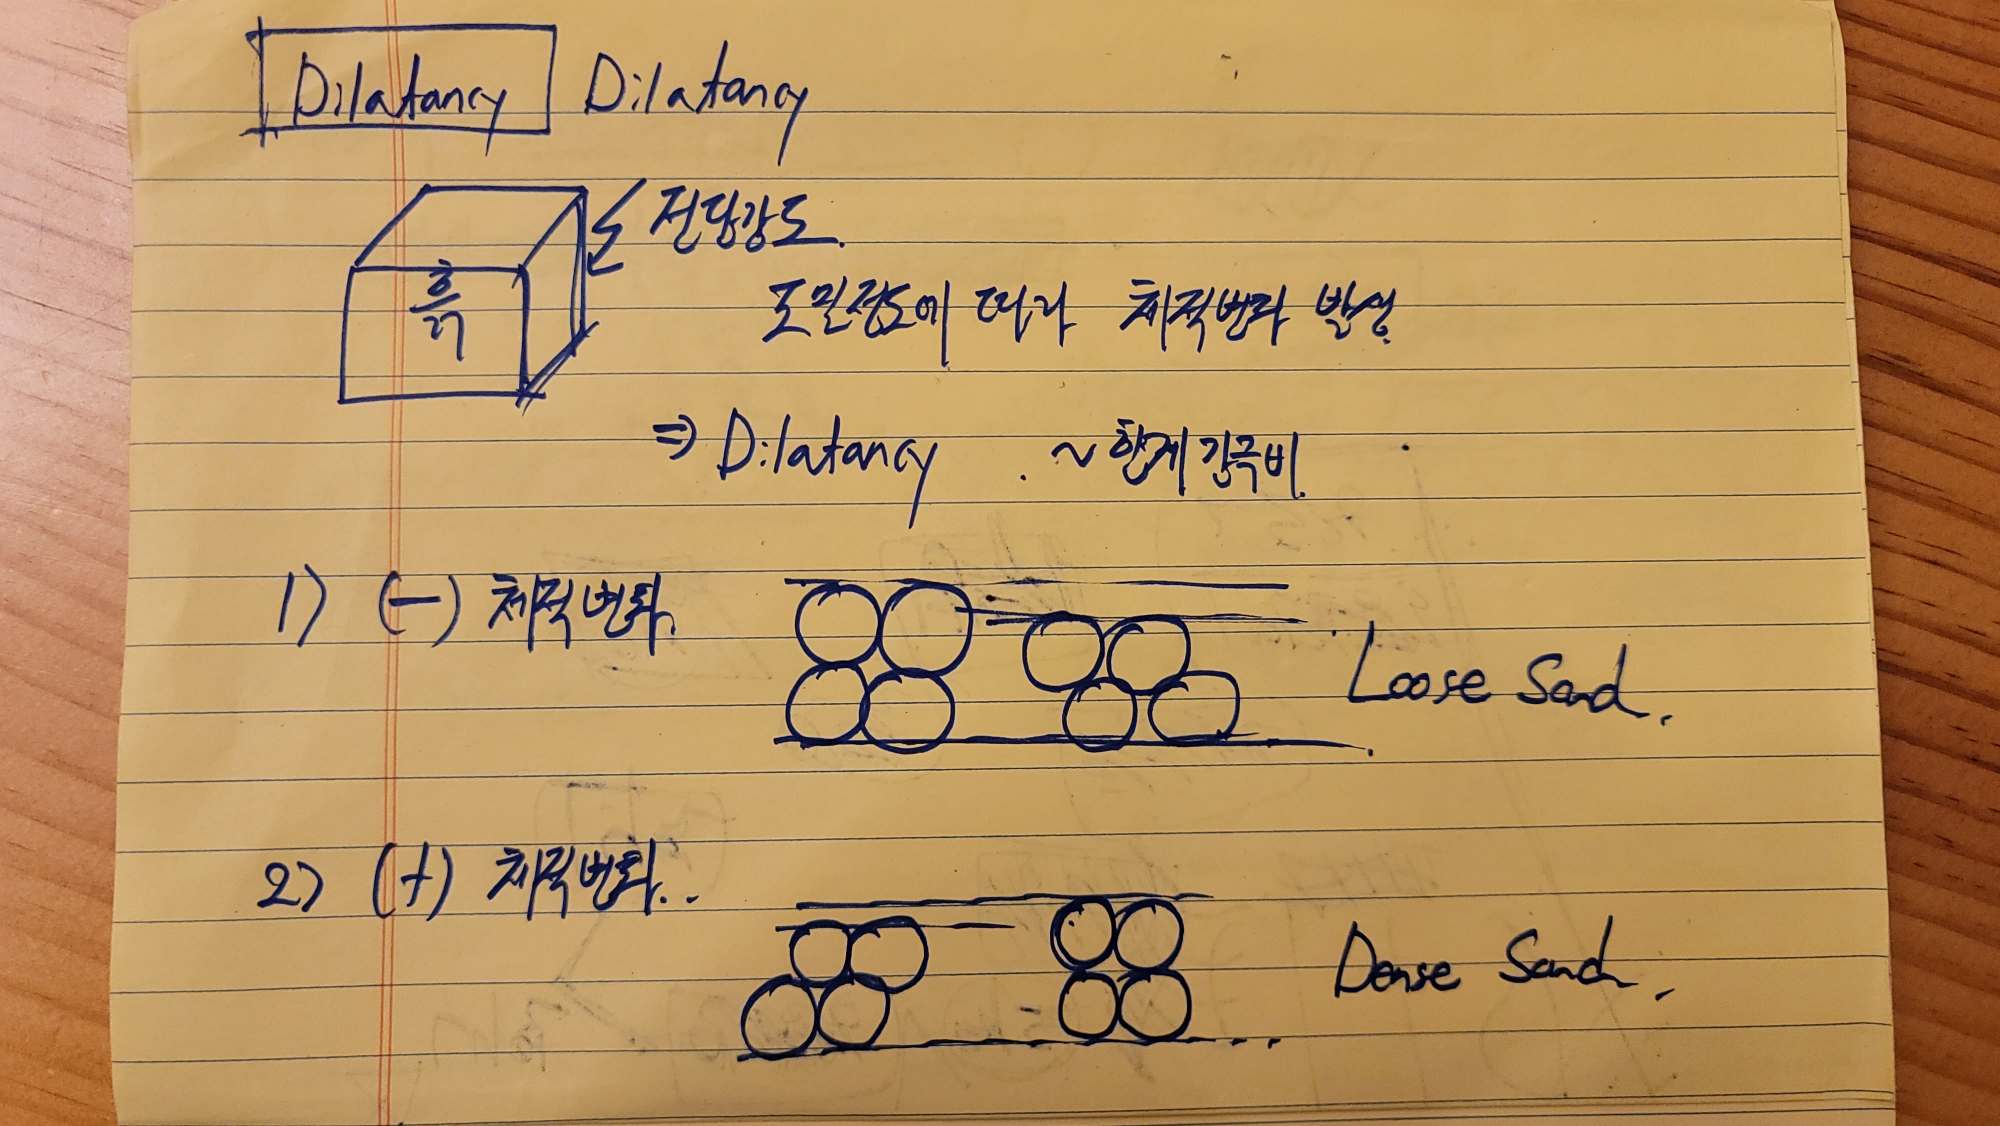 Dilatancy Dilatancy
흙
전단강도.
조밀정도에 따라 체적변화 발생.
⇒ Dilatancy . ~한계간극비.
1) (-) 체적변화.
Loose Sand.
2) (+) 체적변화..
Dense Sand.